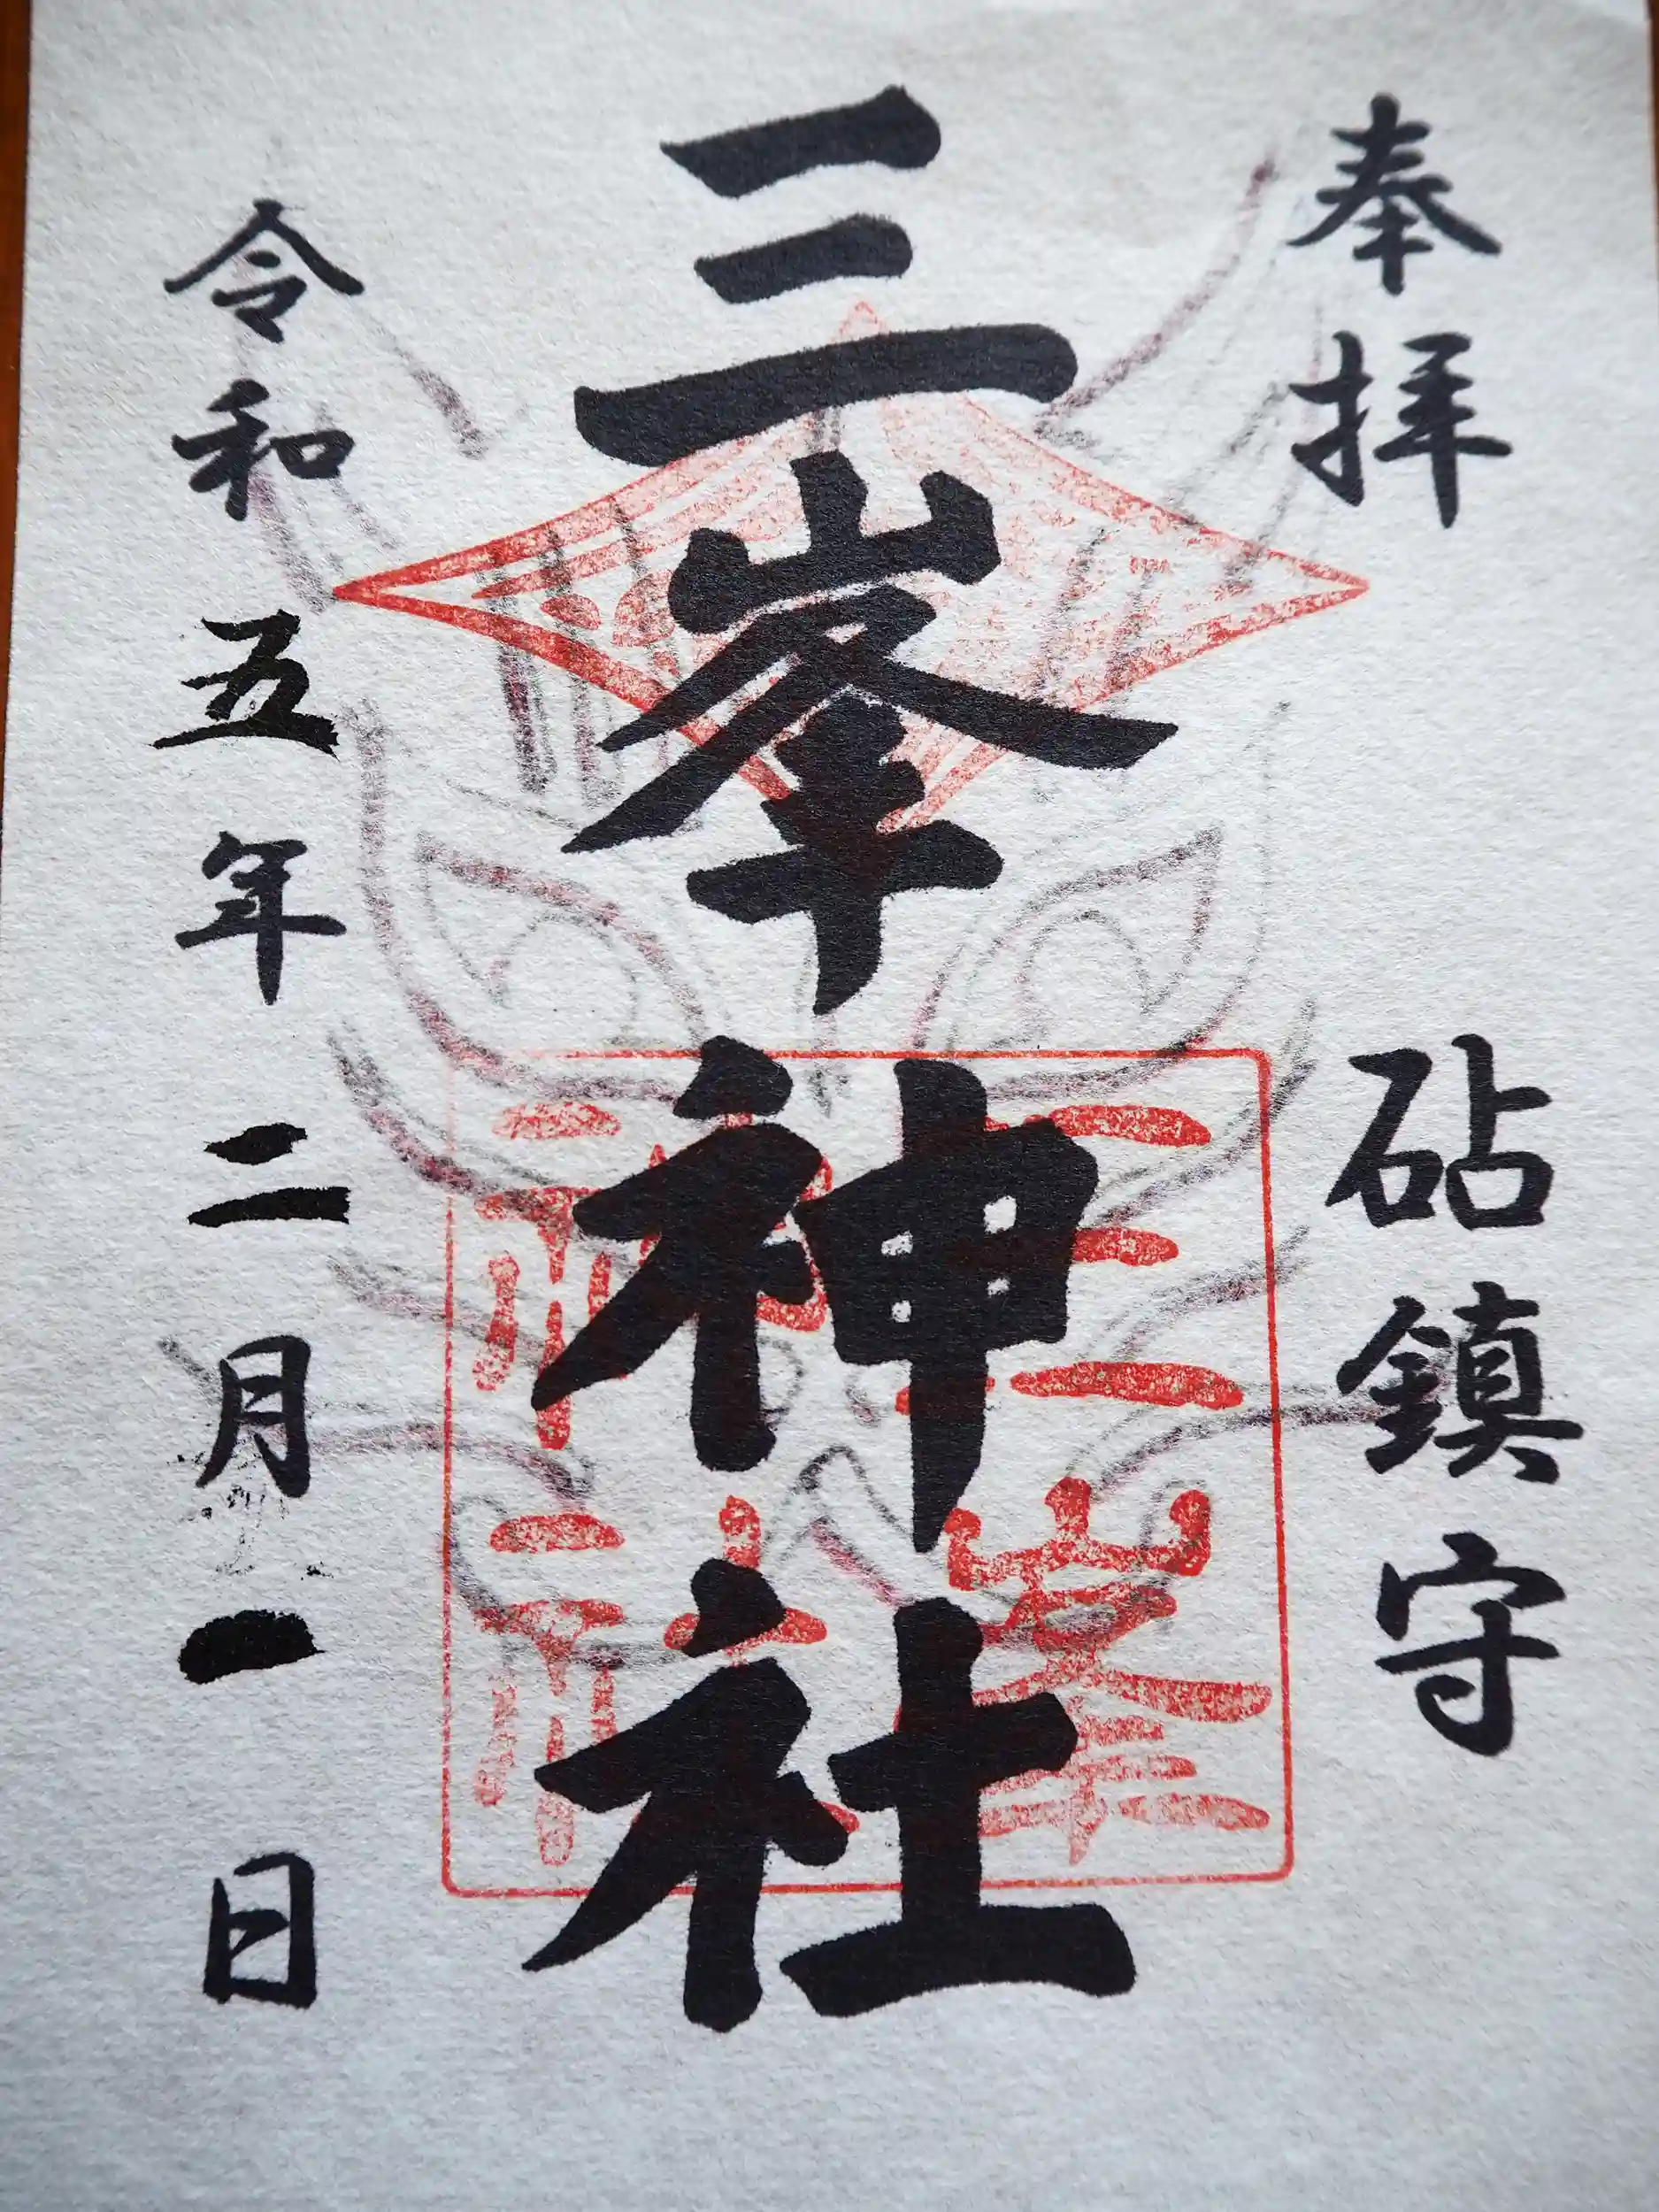 奉拝
砧鎮守
三峯神社
三峯神社
令和五年二月一日